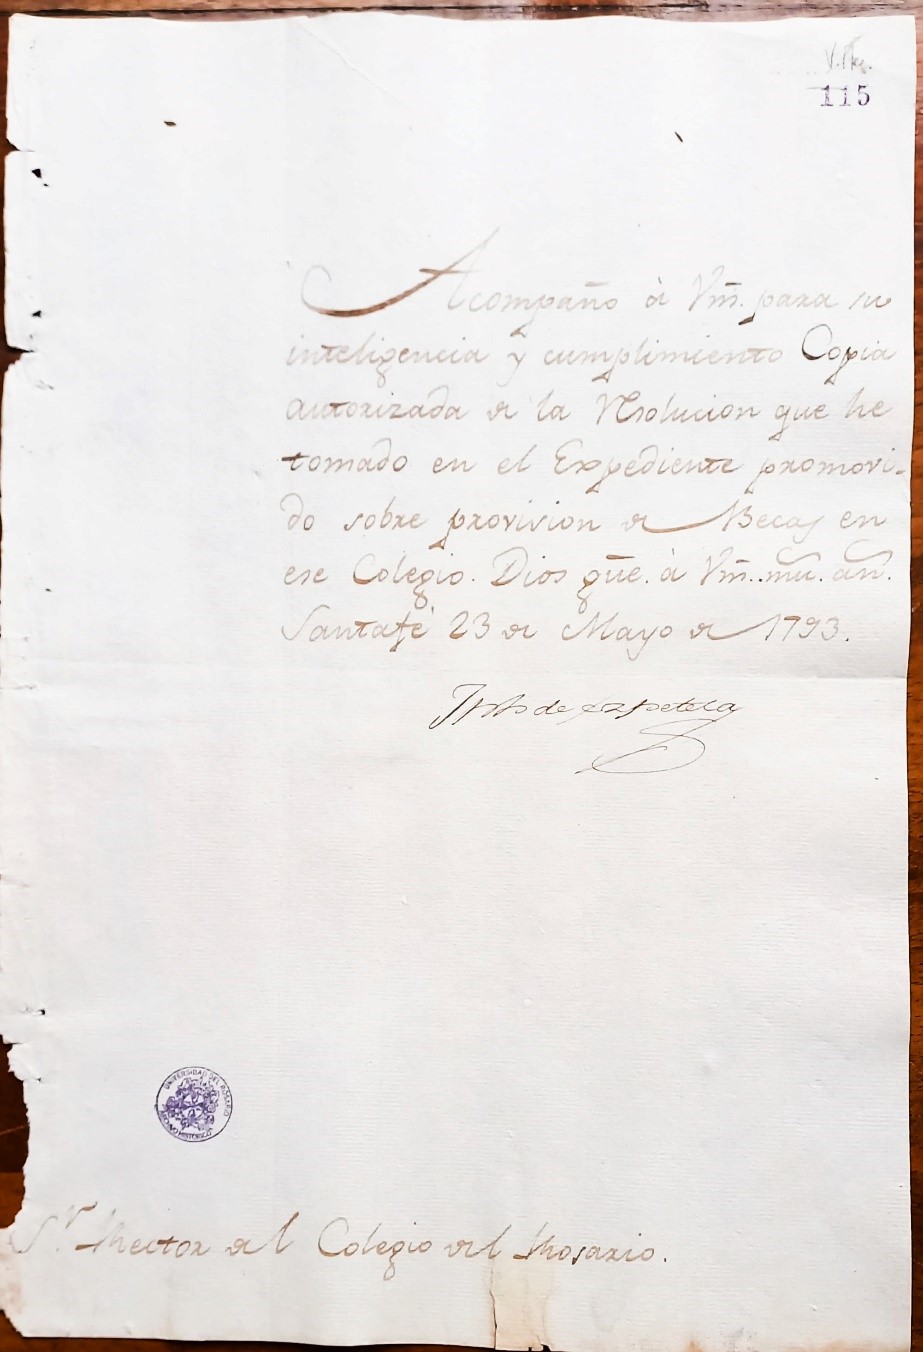 115
Acompaño à Vm̃. para su
inteligencia y cumplimiento Copia
autorizada de la Resolucion que he
tomado en el Expediente promovi-
do sobre provision de Becas en
ese Colegio. Dios gũe. à Vm̃. mũ. añ.
Santafè 23 de Mayo de 1793.
de Ezpeleta
UNIVERSIDAD DEL ROSARIO
ARCHIVO HISTORICO
S.r Rector del Colegio del Rosario.